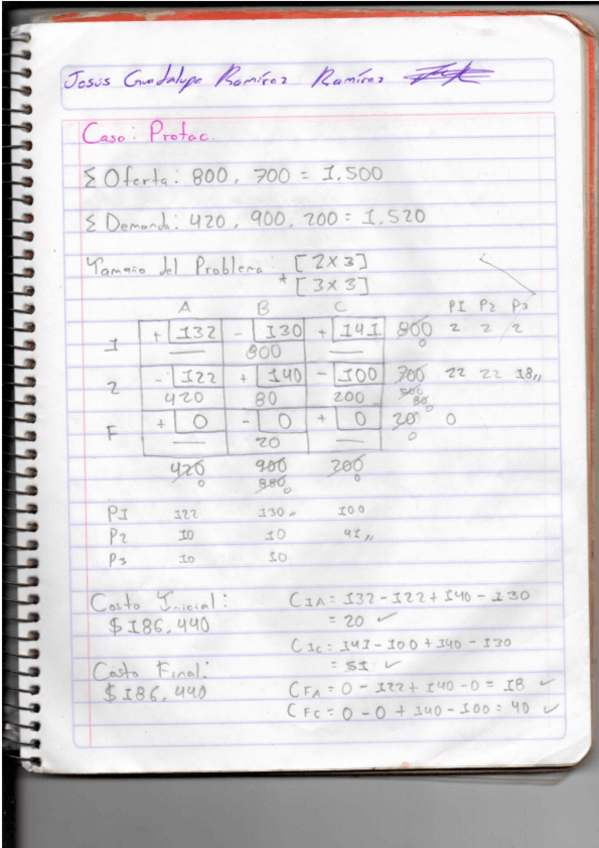 Jesus Guadalupe Ramírez Ramírez
Caso: Protac.
Σ Oferta: 800, 700 = 1,500
Σ Demanda: 420, 900, 200 = 1,520
Tamaño del Problema: [2x3]
* [3x3]
A B C P1 P2 P3
1 + 132 - 130 + 141 800 2 2 2
— 800 — 0
2 - 122 + 140 - 100 700 22 22 18,,
420 80 200 500 80 0
F + 0 - 0 + 0 20 0
— 20 — 0
420 900 200
0 880 0 0
P1 122 130,, 100
P2 10 10 41,,
P3 10 10
Costo Inicial: C1A = 132 - 122 + 140 - 130
$186,440 = 20 ✓
C1C = 141 - 100 + 140 - 130
Costo Final: = 51 ✓
$186,440 CFA = 0 - 122 + 140 - 0 = 18 ✓
CFC = 0 - 0 + 140 - 100 = 40 ✓